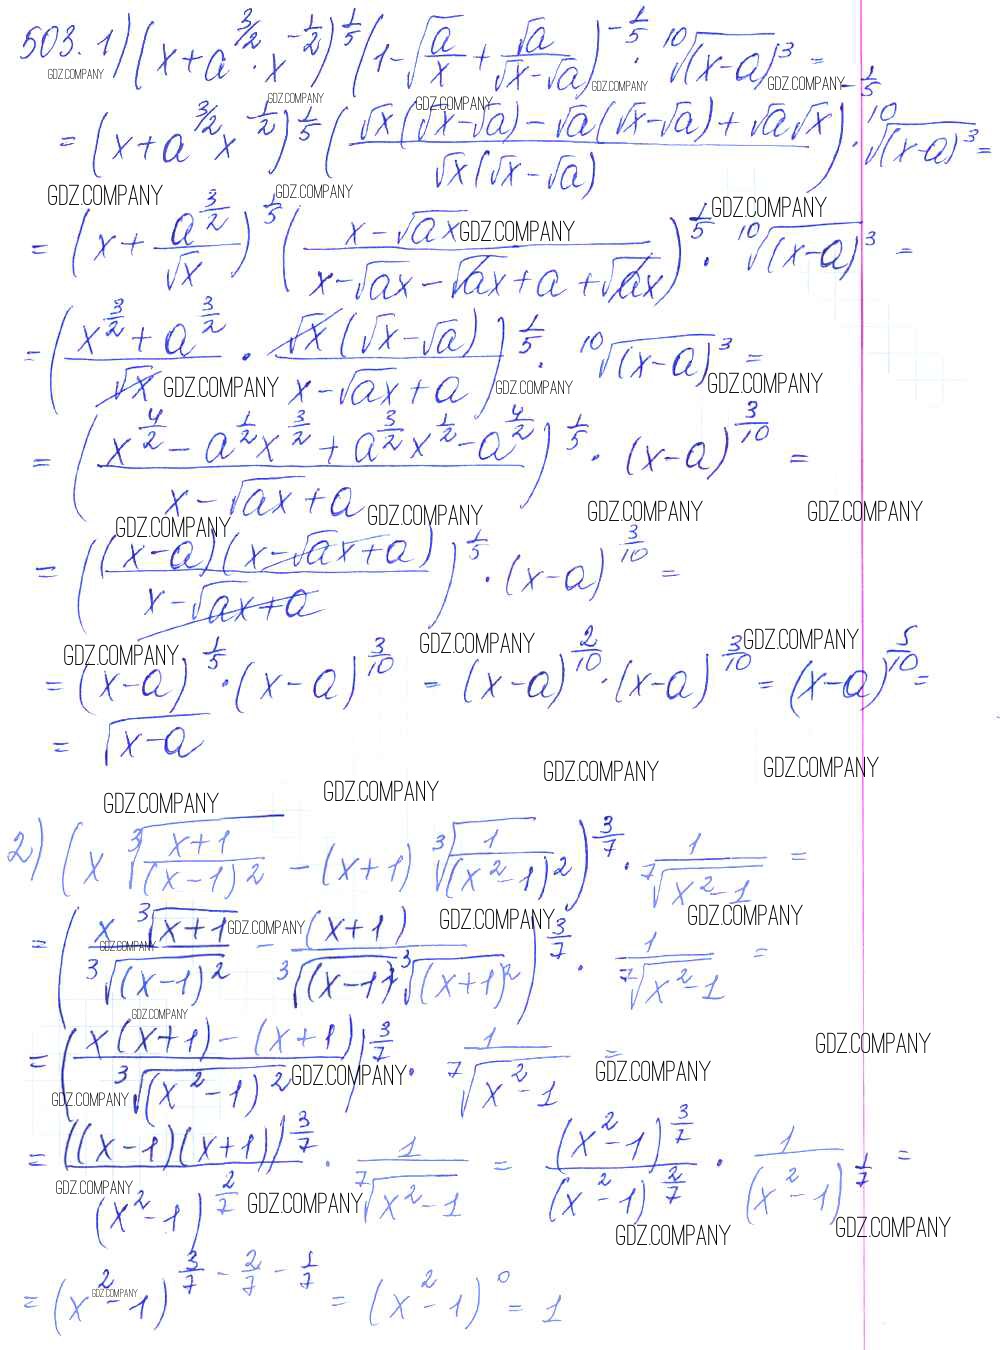 503. 1) (x+a^{3/2}·x^{-1/2})^{1/5} (1-√(a/x) + √a/(√x-√a))^{-1/5} · ¹⁰√(x-a)³ =
= (x+a^{3/2}x^{-1/2})^{1/5} ((√x(√x-√a)-√a(√x-√a)+√a√x)/(√x(√x-√a)))^{-1/5} · ¹⁰√(x-a)³ =
= (x + a^{3/2}/√x)^{1/5} ((x-√ax)/(x-√ax-√ax+a+√ax))^{1/5} · ¹⁰√(x-a)³ =
= ((x^{3/2}+a^{3/2})/√x · √x(√x-√a)/(x-√ax+a))^{1/5} · ¹⁰√(x-a)³ =
= ((x^{4/2}-a^{1/2}x^{3/2}+a^{3/2}x^{1/2}-a^{4/2})/(x-√ax+a))^{1/5} · (x-a)^{3/10} =
= ((x-a)(x-√ax+a)/(x-√ax+a))^{1/5} · (x-a)^{3/10} =
= (x-a)^{1/5} · (x-a)^{3/10} = (x-a)^{2/10} · (x-a)^{3/10} = (x-a)^{5/10} =
= √x-a
2) (x ³√((x+1)/(x-1)²) - (x+1) ³√(1/(x²-1)²))^{3/7} · 1/⁷√x²-1 =
= (x ³√x+1/³√(x-1)² - (x+1)/(³√(x-1)² ³√(x+1)²))^{3/7} · 1/⁷√x²-1 =
= ((x(x+1)-(x+1))/³√(x²-1)²)^{3/7} · 1/⁷√x²-1 =
= ((x-1)(x+1))^{3/7}/(x²-1)^{2/7} · 1/⁷√x²-1 = (x²-1)^{3/7}/(x²-1)^{2/7} · 1/(x²-1)^{1/7} =
= (x²-1)^{3/7-2/7-1/7} = (x²-1)⁰ = 1
GDZ.COMPANY